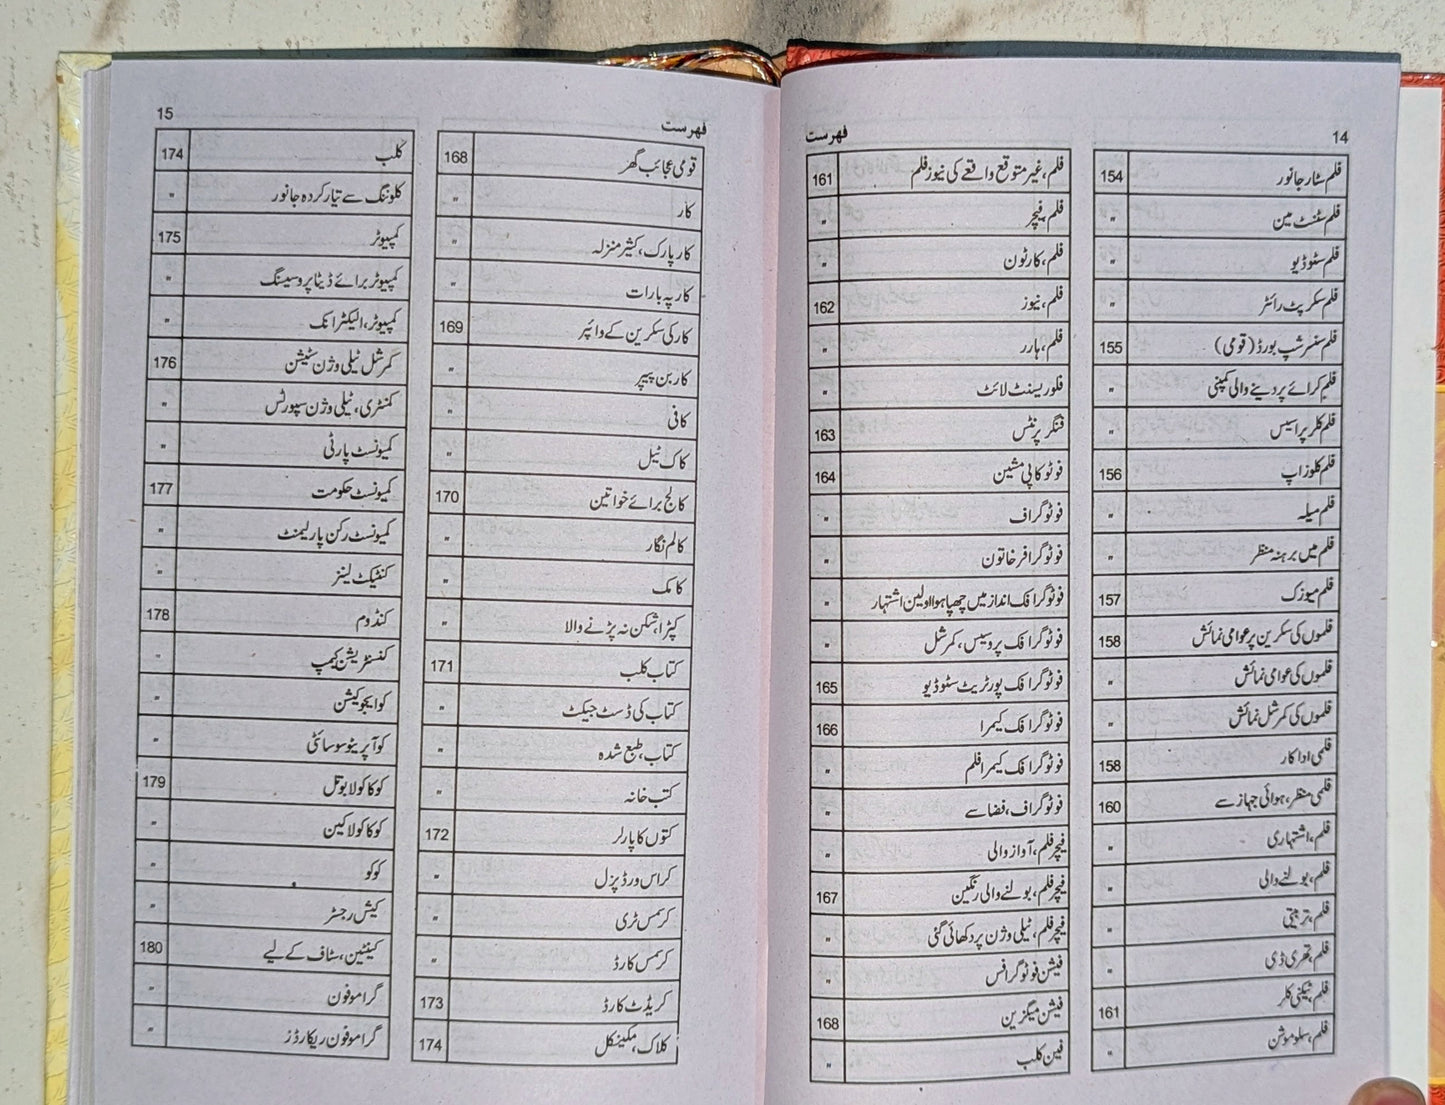 14
فہرست
فلم سٹار جانور 154
فلم سٹنٹ مین "
فلم سٹوڈیو "
فلم سکرپٹ رائٹر "
فلم سنسر شپ بورڈ (قومی) 155
فلم کرائے پر دینے والی کمپنی "
فلم کلر پراسیس "
فلم کلوز اپ 156
فلم میلہ "
فلم میں برہنہ منظر "
فلم میوزک 157
فلموں کی سکرین پر عوامی نمائش 158
فلموں کی عوامی نمائش "
فلموں کی کمرشل نمائش "
فلمی اداکار 158
فلمی منظر، ہوائی جہاز سے 160
فلم، اشتہاری "
فلم، بولنے والی "
فلم، تربیتی "
فلم، تھری ڈی "
فلم، ٹیکنی کلر 161
فلم، سلوموشن "
فلم، غیر متوقع واقعے کی نیوز فلم 161
فلم، فیچر "
فلم، کارٹون "
فلم، نیوز 162
فلم، ہارر "
فلوریسنٹ لائٹ "
فنگر پرنٹس 163
فوٹو کاپی مشین 164
فوٹوگراف "
فوٹوگرافر خاتون "
فوٹوگرافک انداز میں چھپا ہوا اولین اشتہار "
فوٹوگرافک پروسیس، کمرشل "
فوٹوگرافک پورٹریٹ سٹوڈیو 165
فوٹوگرافک کیمرا 166
فوٹوگرافک کیمرا فلم "
فوٹوگراف، فضا سے "
فیچر فلم، آواز والی "
فیچر فلم، بولنے والی رنگین 167
فیچر فلم، ٹیلی وژن پر دکھائی گئی "
فیشن فوٹوگرافس "
فیشن میگزین 168
فین کلب "
فہرست
15
قومی عجائب گھر 168
کار "
کار پارک، کثیر منزلہ "
کار پہ بارات "
کار کی سکرین کے وائپر 169
کاربن پیپر "
کافی "
کاک ٹیل "
کالج برائے خواتین 170
کالم نگار "
کامک "
کپڑا، شکن نہ پڑنے والا "
کتاب کلب 171
کتاب کی ڈسٹ جیکٹ "
کتاب، طبع شدہ "
کتب خانہ "
کتوں کا پارلر 172
کراس ورڈ پزل "
کرسمس ٹری "
کرسمس کارڈ "
کریڈٹ کارڈ 173
کلاک، مکینکل 174
کلب 174
کلوننگ سے تیار کردہ جانور "
کمپیوٹر 175
کمپیوٹر برائے ڈیٹا پروسیسنگ "
کمپیوٹر، الیکٹرانک "
کمرشل ٹیلی وژن سٹیشن 176
کمنٹری، ٹیلی وژن سپورٹس "
کمیونسٹ پارٹی "
کمیونسٹ حکومت 177
کمیونسٹ رکن پارلیمنٹ "
کنٹیکٹ لینز "
کنڈوم 178
کنسنٹریشن کیمپ "
کو ایجوکیشن "
کوآپریٹو سوسائٹی "
کوکا کولا بوتل 179
کوکا کولا کین "
کوکو "
کیش رجسٹر "
کینٹین، سٹاف کے لیے 180
گراموفون "
گراموفون ریکارڈز "